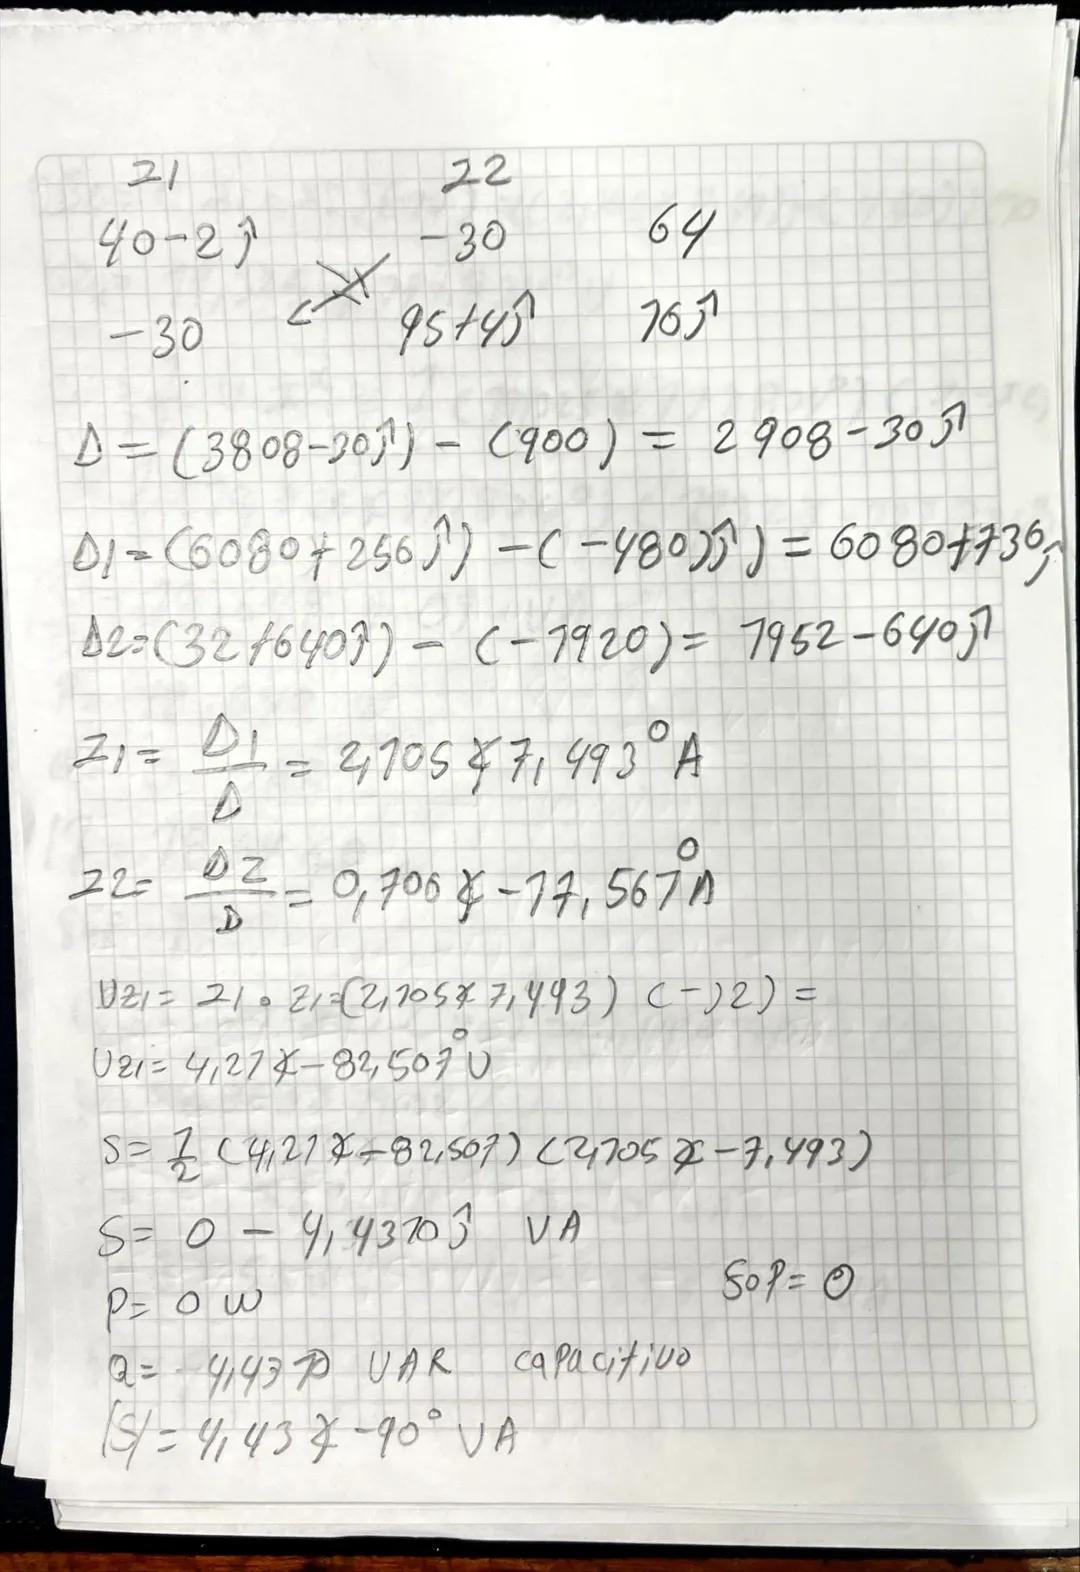 Z1 Z2
40-2j -30 64
-30 95+4j 16j
Δ = (3808-30j) - (900) = 2908-30j
Δ1= (6080+256j) - (-480j) = 6080+736j
Δ2=(32+640j) - (-1920) = 1952-640j
I1= Δ1/Δ = 2,105∡7,493° A
I2= Δ2/Δ = 0,706∡-17,567° A
Uz1= I1 • Z1=(2,105∡7,493) (-j2) =
Uz1= 4,21∡-82,507° V
S= 1/2 (4,21∡-82,507) (2,105∡-7,493)
S= 0 - 4,4310j VA
P= 0 W fop= 0
Q= -4,4310 VAR capacitivo
|S| = 4,43∡-90° VA